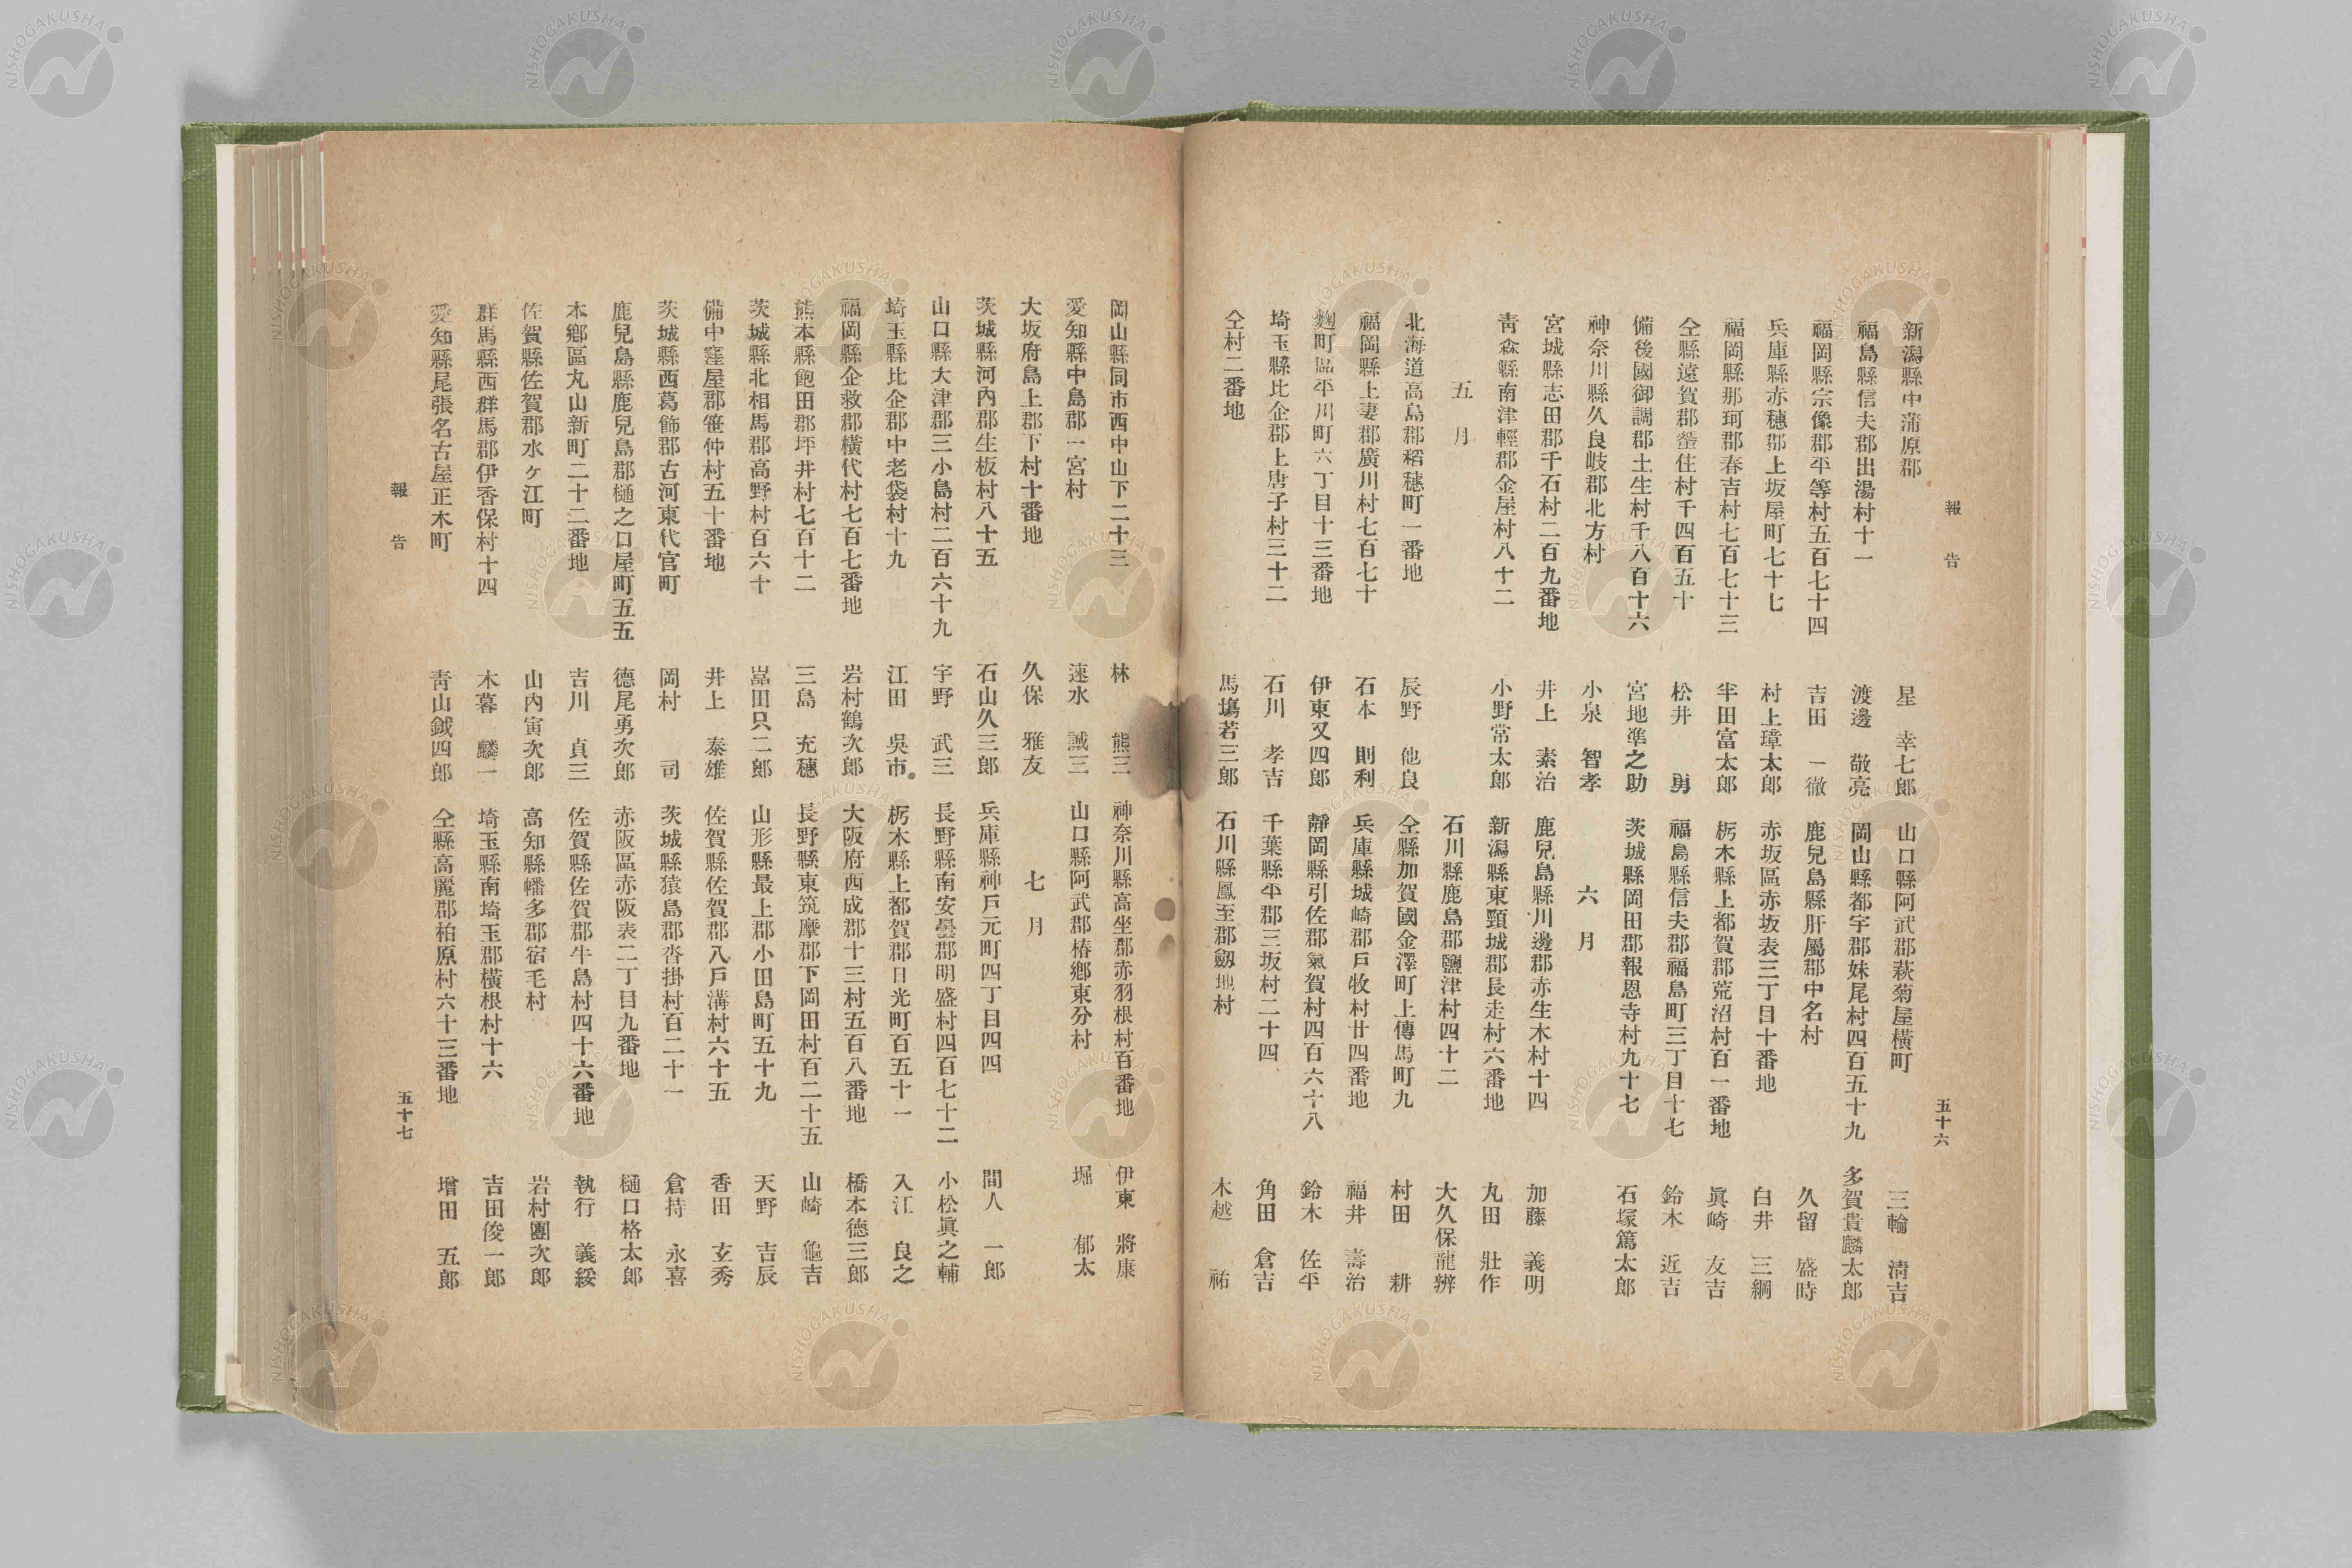 報告
五十六
新潟縣中蒲原郡 星 幸七郎
福島縣信夫郡出湯村十一 渡邊 敬亮
福岡縣宗像郡平等村五百七十四 吉田 一徹
兵庫縣赤穗郡上坂屋町七十七 村上璋太郎
福岡縣那珂郡春吉村七百七十三 半田富太郎
仝縣遠賀郡蜑住村千四百五十 松井 勇
備後國御調郡土生村千八百十六 宮地準之助
神奈川縣久良岐郡北方村 小泉 智孝
宮城縣志田郡千石村二百九番地 井上 素治
青森縣南津輕郡金屋村八十二 小野常太郎
五月
北海道高島郡稻穗町一番地 辰野 他良
福岡縣上妻郡廣川村七百七十 石本 則利
麴町區平川町六丁目十三番地 伊東又四郎
埼玉縣比企郡上唐子村三十二 石川 孝吉
仝村二番地 馬塲若三郎
山口縣阿武郡萩菊屋橫町 三輪 淸吉
岡山縣都宇郡妹尾村四百五十九 多賀貴麟太郎
鹿兒島縣肝屬郡中名村 久留 盛時
赤坂區赤坂表三丁目十番地 白井 三綱
栃木縣上都賀郡荒沼村百一番地 眞崎 友吉
福島縣信夫郡福島町三丁目十七 鈴木 近吉
茨城縣岡田郡報恩寺村九十七 石塚篤太郎
六月
鹿兒島縣川邊郡赤生木村十四 加藤 義明
新潟縣東頸城郡長走村六番地 丸田 壯作
石川縣鹿島郡鹽津村四十二 大久保龍辨
仝縣加賀國金澤町上傳馬町九 村田 耕
兵庫縣城崎郡戸牧村廿四番地 福井 壽治
靜岡縣引佐郡氣賀村四百六十八 鈴木 佐平
千葉縣平郡三坂村二十四 角田 倉吉
石川縣鳳至郡劔地村 木越 祐
岡山縣同市西中山下二十三 林 熊三
愛知縣中島郡一宮村 速水 誠三
大坂府島上郡下村十番地 久保 雅友
茨城縣河內郡生板村八十五 石山久三郎
山口縣大津郡三小島村二百六十九 宇野 武三
埼玉縣比企郡中老袋村十九 江田 吳市
福岡縣企救郡橫代村七百七番地 岩村鶴次郎
熊本縣飽田郡坪井村七百十二 三島 充穗
茨城縣北相馬郡高野村百六十 嵓田只二郎
備中窪屋郡笹仲村五十番地 井上 泰雄
茨城縣西葛飾郡古河東代官町 岡村 司
鹿兒島縣鹿兒島郡樋之口屋町五五 德尾勇次郎
本鄉區丸山新町二十二番地 吉川 貞三
佐賀縣佐賀郡水ヶ江町 山内寅次郎
群馬縣西群馬郡伊香保村十四 木暮 麟一
愛知縣尾張名古屋正木町 靑山鉞四郎
神奈川縣高坐郡赤羽根村百番地 伊東 將康
山口縣阿武郡椿鄉東分村 堀 郁太
七月
兵庫縣神戸元町四丁目四四 間人 一郎
長野縣南安曇郡明盛村四百七十二 小松眞之輔
栃木縣上都賀郡日光町百五十一 入江 良之
大阪府西成郡十三村五百八番地 橋本德三郎
長野縣東筑摩郡下岡田村百二十五 山崎 龜吉
山形縣最上郡小田島町五十九 天野 吉辰
佐賀縣佐賀郡八戸溝村六十五 香田 玄秀
茨城縣猿島郡沓掛村百二十一 倉持 永喜
赤阪區赤阪表二丁目九番地 樋口格太郎
佐賀縣佐賀郡牛島村四十六番地 執行 義綏
高知縣幡多郡宿毛村 岩村團次郎
埼玉縣南埼玉郡橫根村十六 吉田俊一郎
仝縣高麗郡柏原村六十三番地 增田 五郎
報告
五十七